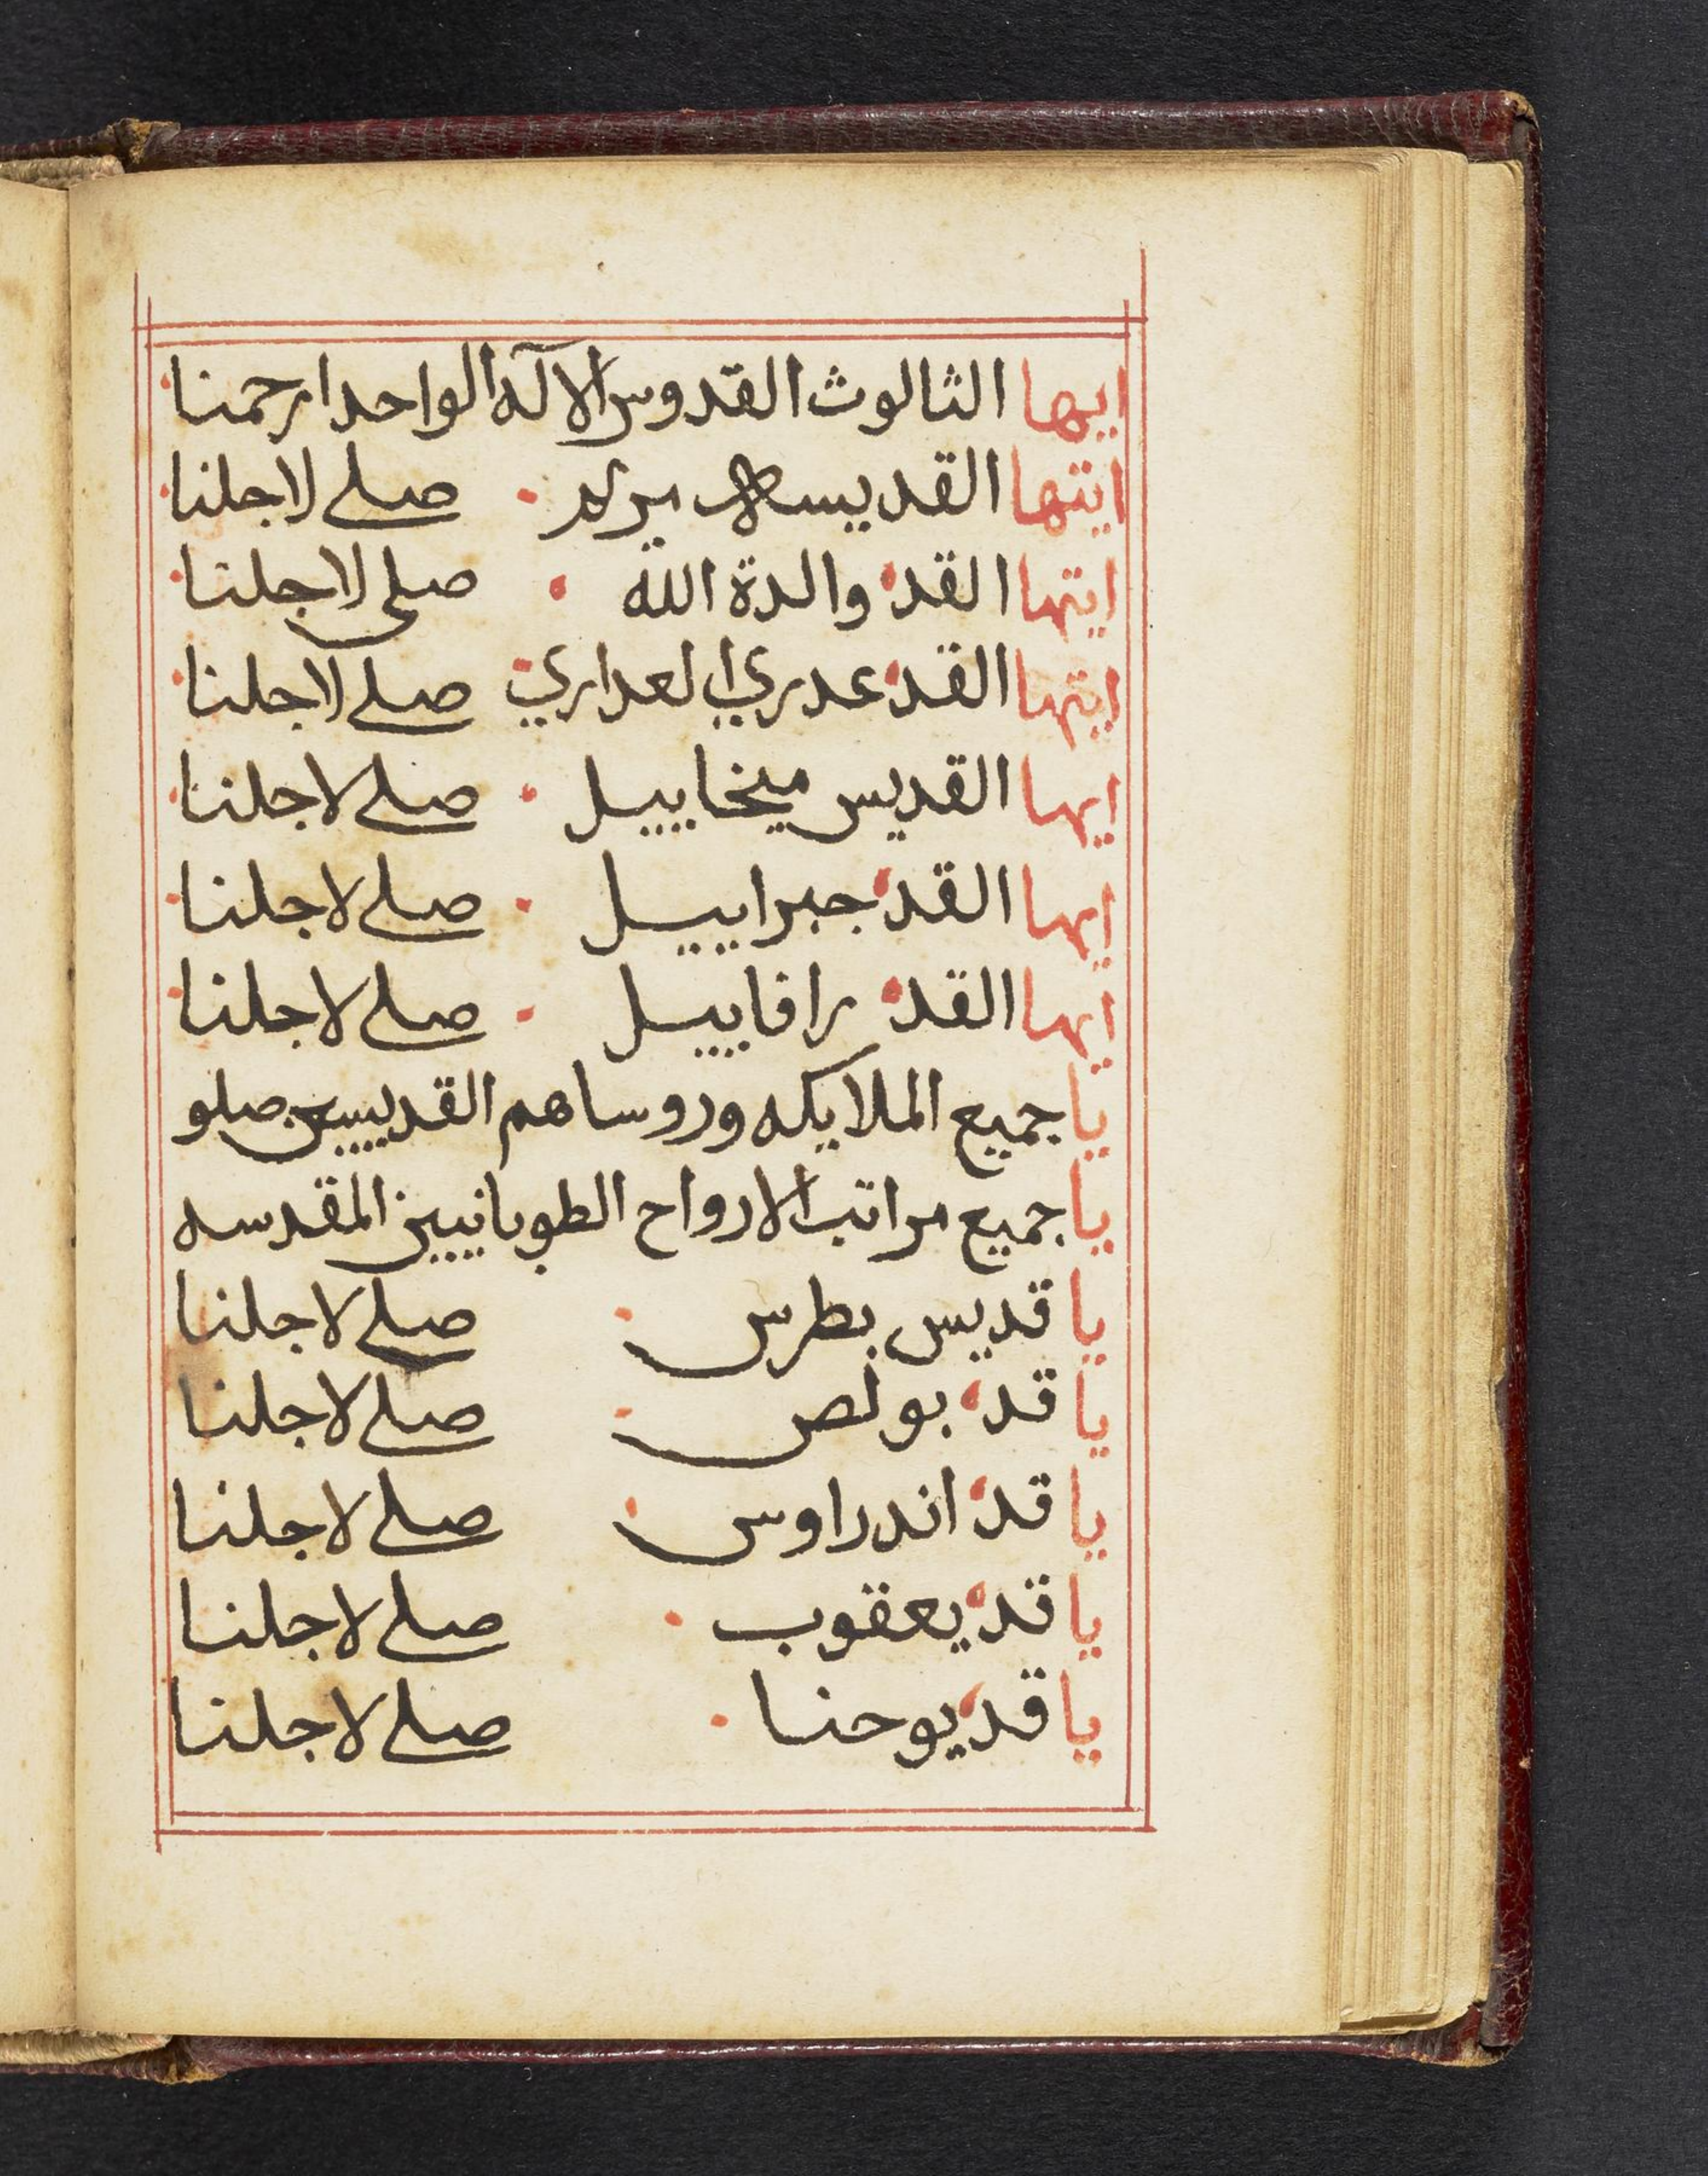 ايها الثالوث القدوس الالآه الواحد ارحمنا
ايتها القديسه مريم · صلي لاجلنا
ايتها القد والدة الله · صلي لاجلنا
ايتها القد عدري العداري · صلي لاجلنا
ايها القديس ميخاييل · صلي لاجلنا
ايها القد جبراييل · صلي لاجلنا
ايها القد رافاييل · صلي لاجلنا
يا جميع الملايكه وروساهم القديسين صلو
يا جميع مراتب الارواح الطوبانيين المقدسه
يا قديس بطرس · صلي لاجلنا
يا قد بولص · صلي لاجلنا
يا قد اندراوس · صلي لاجلنا
يا قد يعقوب · صلي لاجلنا
يا قد يوحنا · صلي لاجلنا